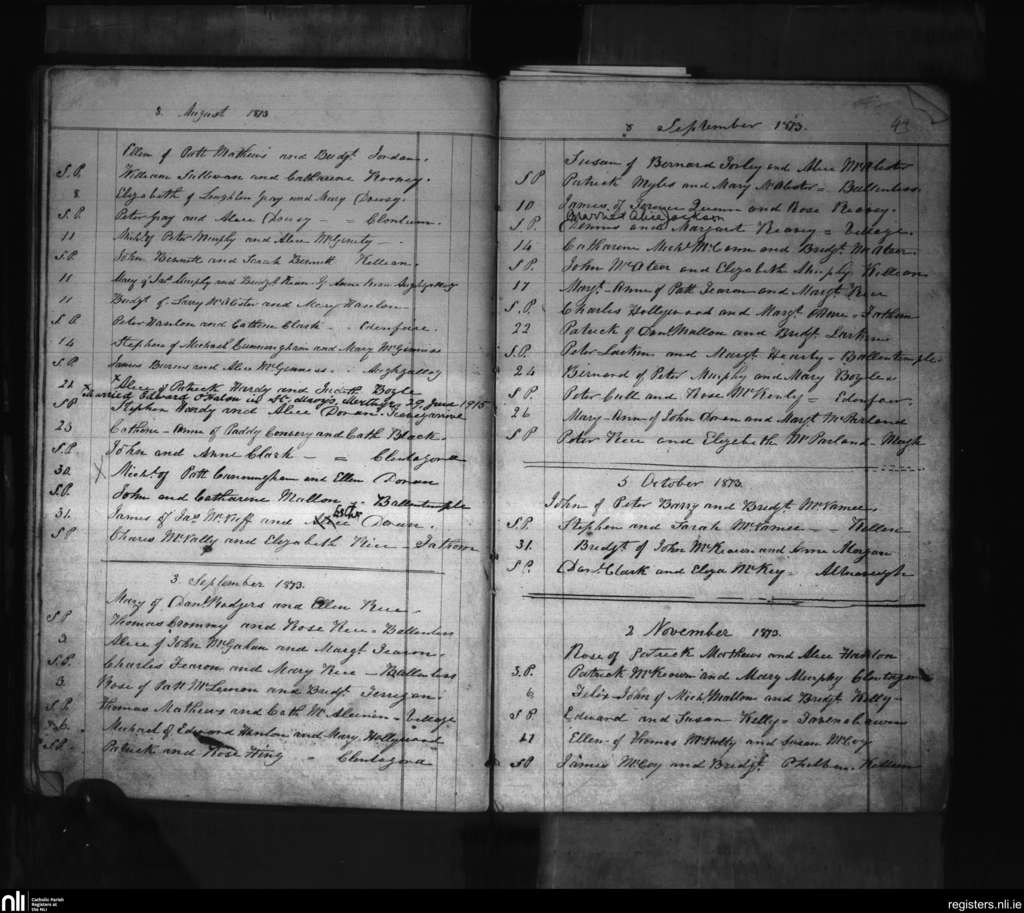 3. August 1873
Ellen of Patt Mathews and Bridgt Jordan.
S.P. William Sullivan and Catharine Rooney.
8 Elizabeth of Loughlin Gray and Mary
S.P. Peter Gray and Alice
11 Michl of Peter Murphy and Alice McGinity
S.P. John Bennett and Sarah Bennett Killean.
11 Mary of Jas Murphy and Bridgt Aughgalloy
11 Bridgt of McAlister and Mary Hanlon
S.P. Peter Hanlon and Catherine Clark - Edenfoire.
14 Stephen of Michael Cunningham and Mary McGinness
S.P. James Burns and Alice McGinness : Aughgalloy
21 Alice of Patrick Hardy and Judith Boyle
x Married Edward O'Fallon in St Mary's 29 June 1915
S.P. Stephen Hardy and Alice Donan
25 Catherine - Anne of Paddy Conserry and Cath Black
S.P. John and Anne Clark - = Clontagora
30 Michl of Patt Cunningham and Ellen Donan
S.P. John and Catharine Mallon - Ballentemple
31. James of Jas McNiff and Doran.
S.P. Charles McNally and Elizabeth Rice - Jathom
3. September 1873.
Mary of Danl Rodgers and Ellen Rice
S.P. Thomas Crommy and Rose Rice - Ballenless
3 Alice of John McGahan and Margt Fearon.
S.P. Charles Fearon and Mary Rice - Ballenless
3. Rose of Patt McLernon and Bridgt Ferrigan
S.P. Thomas Mathews and Cath - Village
6. Michael of Edward Hanlon and Mary Hollywood
S.P. Patrick and Rose King = Clontagora
8 September 1873. 49
Susan of Bernard Sorley and Alice McAlister
S P Patrick Myles and Mary McAlister = Ballenless
10 James of Terence Quinn and Rose Reavey.
(Married Alice Jackson
S P. Dennis and Margaret Reavey = Village
14 Catharine Michl McCann and Bridgt McAteer
S.P. John McAteer and Elizabeth Murphy Killean
17 Margt Anne of Patt Fearon and Margt Rice
S.P. Charles Hollywood and Margt - Jatham
22 Patrick of Danl Mallon and Bridgt Larkin
S.P. Peter Larkin and Margt Hearty - Ballentemple
24 Bernard of Peter Murphy and Mary Boyle
S P. Peter Cull and Rose McKinly = Edenfoar.
26 Mary-Anne of John Doran and Margt McParland
S P Peter Rice and Elizabeth McParland - Meigh
5 October 1873.
John of Peter Barry and Bridgt McNamee
S.P. Stephen and Sarah McNamee - Killeen
31. Bridgt of John McKeown and Anne Morgan
S P. Danl Clark and Eliza McKey - Altnaveigh
2 November 1873.
Rose of Patrick Mathews and Alice Hanlon
S.P. Patrick McKeown and Mary Murphy Clontagora
6 Felix-John of Michl Mallon and Bridgt Kelly -
S P Edward and Susan Kelly =
Ellen of Thomas McNally and Susan McCoy
S P James McCoy and Bridgt Philben. Killeen
nli Catholic Parish
Registers at
the NLI
registers.nli.ie